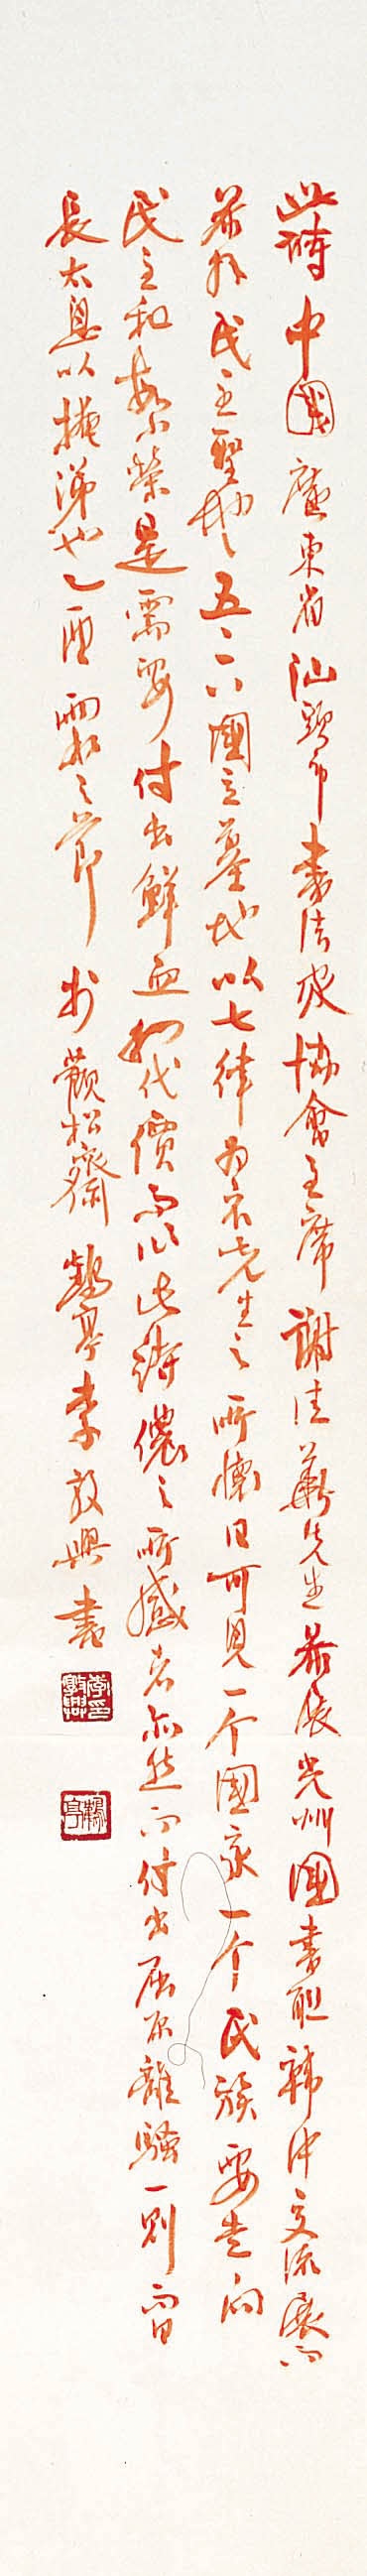 此時中國廣東省汕頭市書法家協會主席謝佳華先生參展光州國書聯韓中交流展而
參拜民主聖地五一八國立墓地以七律為宗先生之所懷曰可見一个國家一个民族要走向
民主和繁榮是需要付出鮮血的代價而以此詩儂之所感者亦然而付出屈原離騷一則曰
長太息以掩涕也乙酉雨水之節於觀松齋鶴亭李敦興書
李敦興印
鶴亭